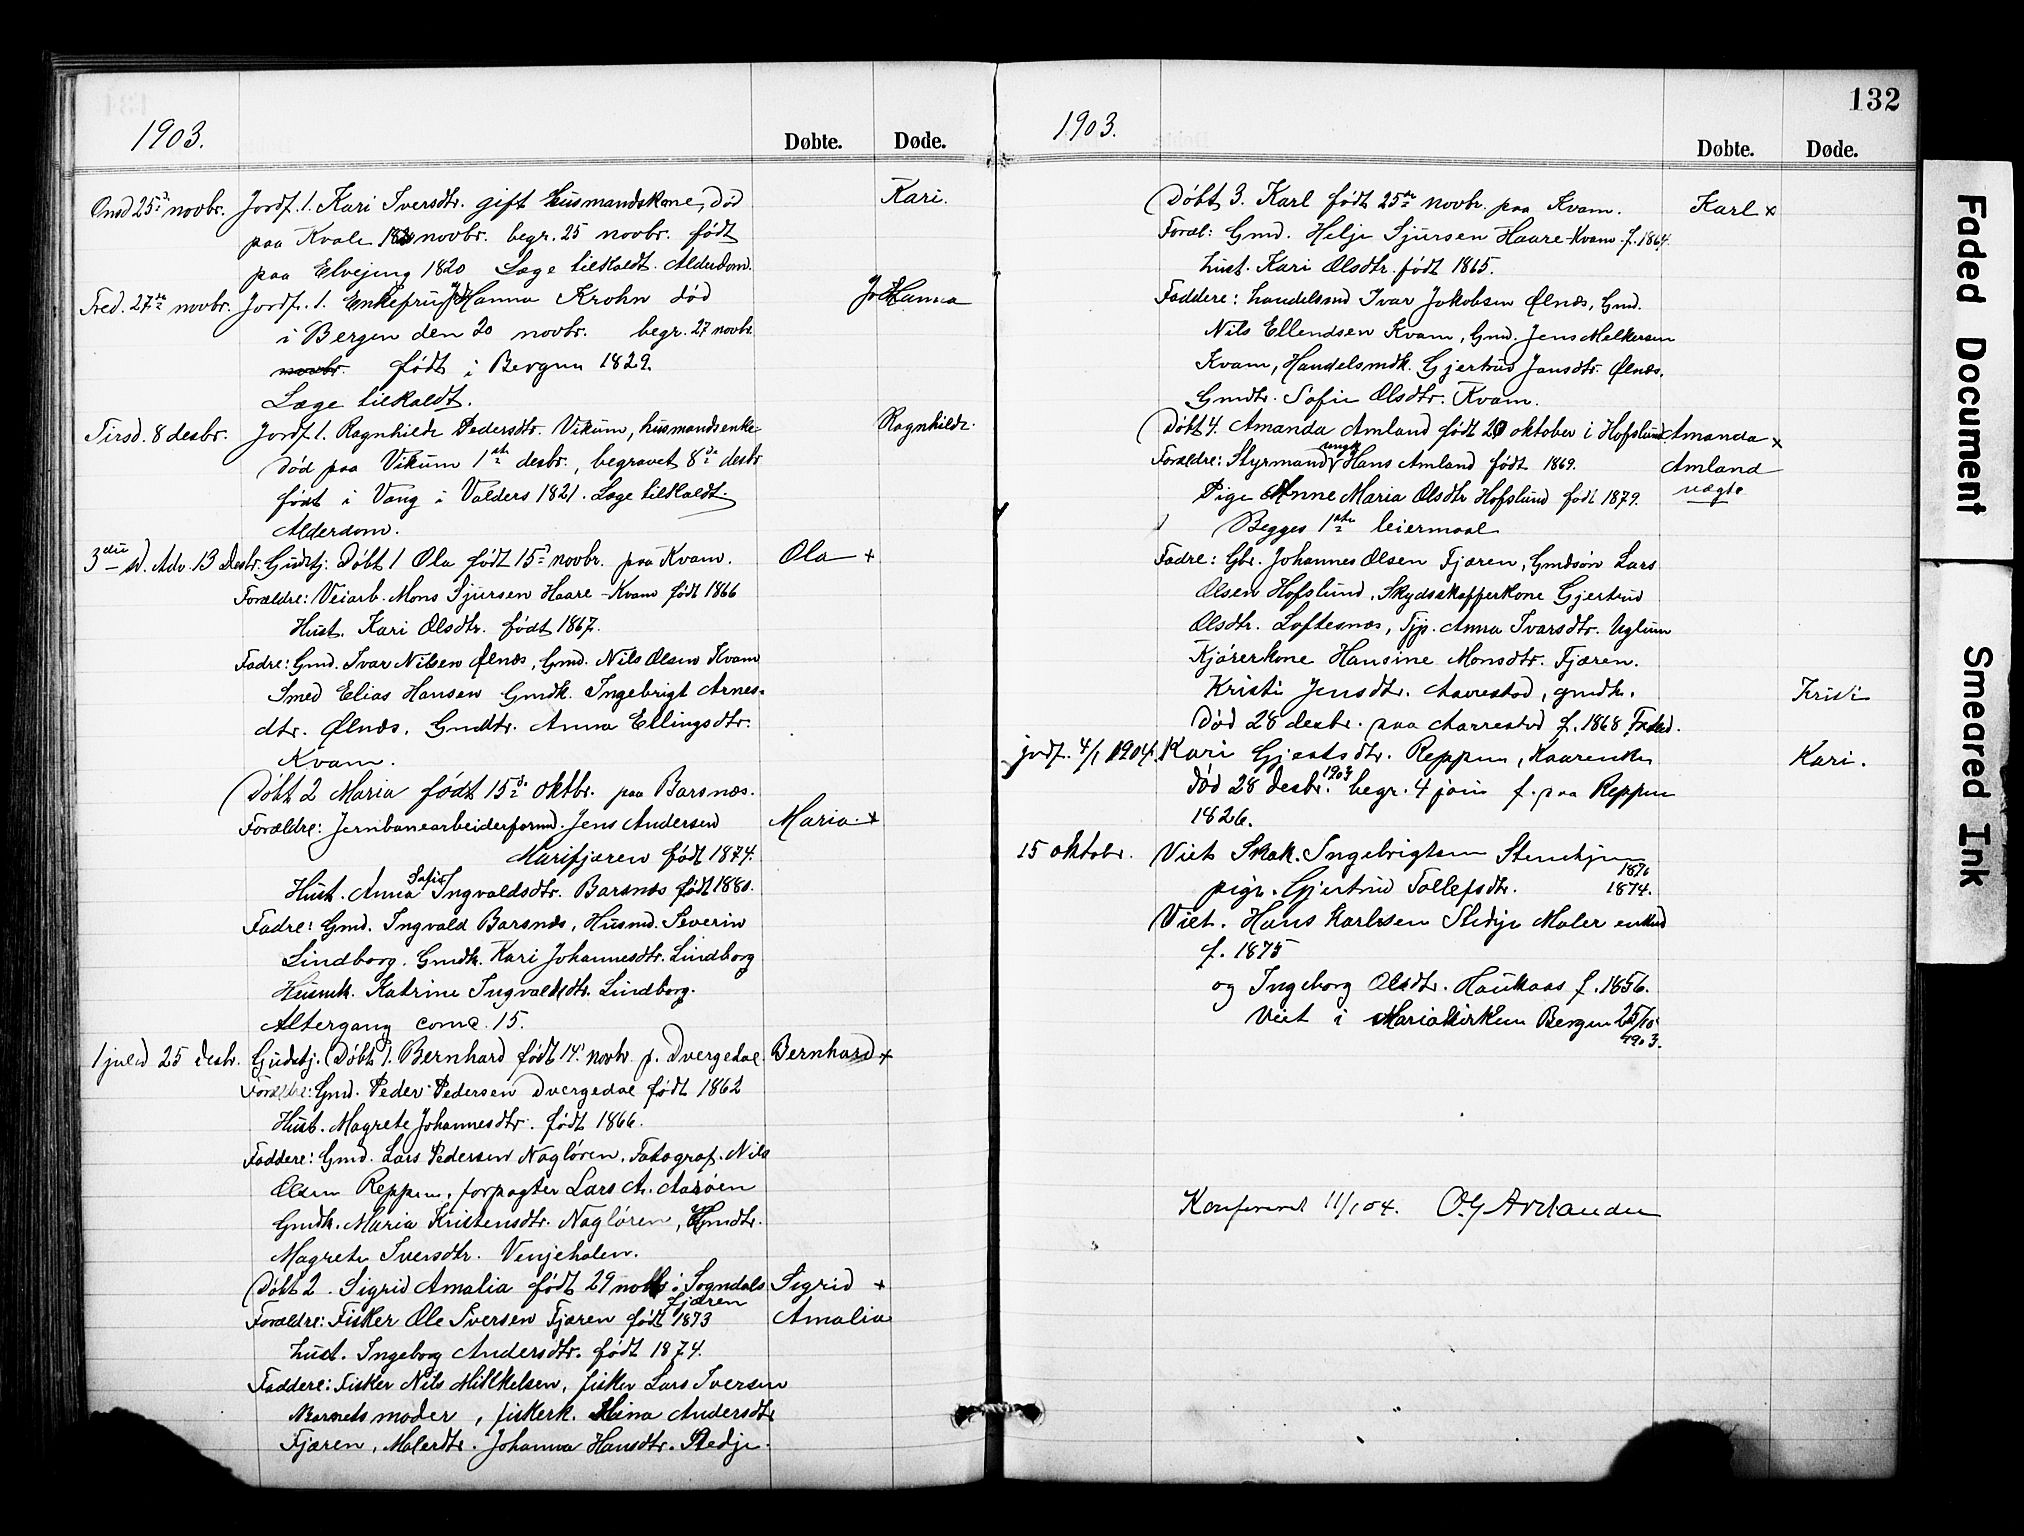 1903.
Døbte.
Døde.
Onsd 25de novbr. Jordf. 1. Kari Iversdtr. gift husmandskone, død
Kari.
paa Kvale novbr. begr. 25 novbr. født
paa Elvejing 1820 Læge tilkaldt. Alderdom.
Fred. 27de novbr. Jordf. 1. Enkefru Johanna Krohn død
Johanna
i Bergen den 20 novbr. begr. 27 novbr.
novbr. født i Bergen 1829.
Læge tilkaldt.
Tirsd. 8 desbr. Jordf 1. Ragnhilde Pedersdtr. Vikum, husmandsenke
Ragnhilde.
død paa Vikum 1ste desbr., begravet 8de desbr
født i Vang i Valders 1821. Læge tilkaldt.
Alderdom.
3die s. Adv. 13 desbr. Gudstj. Døbt 1 Ola født 15de novbr. paa Kvam.
Ola +
Forældre: Veiarb. Mons Sjursen Haare-Kvam født 1866
Hust. Kari Olsdtr. født 1867.
Fadre: Gmd. Ivar Nilsen Ølnæs, Gmd. Nils Olsen Kvam
Smed Elias Hansen Gmdk. Ingebrigt Arnes-
dtr. Ølnæs, Gmdtr. Anna Ellingsdtr.
Kvam.
Døbt 2 Maria født 15de oktbr. paa Barsnæs.
Forældre: Jernbanearbeiderformd. Jens Andersen
Maria. +
Marifjæren født 1874.
Hust. Anna Sofie Ingvaldsdtr. Barsnæs født 1880.
Fadre: Gmd. Ingvald Barsnæs, Husmd. Severin
Lindborg. Gmdk. Kari Johannesdtr. Lindborg
Husmk. Katrine Ingvaldsdtr. Lindborg.
Altergang comc. 15.
1 juled 25 desbr. Gudstj. Døbt 1. Bernhard født 14de novbr p. Dvergedal
Bernhard +
Forældre: Gmd. Peder Pedersen Dvergedal født 1862
Hust. Magrete Johannesdtr. født 1866.
Faddere: Gmd. Lars Pedersen Nagløren. Fotograf. Nils
Olsen Reppen, forpagter Lars A. Aarøen
Gmdk. Maria Kristensdtr. Nagløren, Gmdtr.
Magrete Iversdtr. Venjehalen.
Døbt 2. Sigrid Amalia født 29 novbr i Sogndals
Fjæren
Sigrid +
Amalia
Forældre: Fisker Ole Iversen Fjæren født 1873
hust. Ingeborg Andersdtr. født 1874.
Faddere: Fisker Nils Mikkelsen, fisker Lars Iversen
Barnets moder, fiskerk. Stina Andersdtr
Fjæren, Malerdtr. Johanna Hansdtr. Stedje.
132
1903.
Døbte.
Døde.
Døbt 3. Karl født 25de novbr. paa Kvam.
Karl +
Foræl: Gmd. Helje Sjursen Haare-Kvam f. 1864.
hust. Kari Olsdtr. født 1865.
Faddere: handelsmd Ivar Jakobsen Ølnæs, Gmd.
Nils Ellendsen Kvam, Gmd. Jens Melkersen
Kvam, Handelsmdk. Gjertrud Jansdtr. Ølnæs.
Gmdtr. Sofie Olsdtr. Kvam.
Døbt 4. Amanda Amland født 20 oktober i Hofslund
Amanda +
Amland
uægte
Forældre: Styrmand ungk Hans Amland født 1869.
Pige Anne Maria Olsdtr Hofslund født 1879.
Begges 1ste leiermaal
Fadre: Gbr. Johannes Olsen Fjæren, Gmdsøn Lars
Olsen Hofslund, Skydsskafferkone Gjertrud
Olsdtr. Loftesnæs, Tjp. Anna Ivarsdtr. Uglum
Kjørerkone Hansine Monsdtr. Fjæren.
Kristi Jensdtr. Aarrestad, gmdk.
Kristi
Død 28 desbr. paa Aarrestad f. 1868
jordf. 4/1 1904. Kari Gjestsdtr. Reppen, Kaarenke
Kari.
død 28 desbr. 1903 begr. 4 jan f. paa Reppen
1826.
15 oktobr. Viet Skak. Ingebrigtsen Stenehjem
1870
pige. Gjertrud Tollefsdtr. 1874.
Viet. Hans Karlsen Stedje Maler enkmd
f. 1875
og Ingeborg Olsdtr. Haukaas f. 1856.
Viet i Mariakirken Bergen 25/10
1903.
Konfereret 11/1 04.